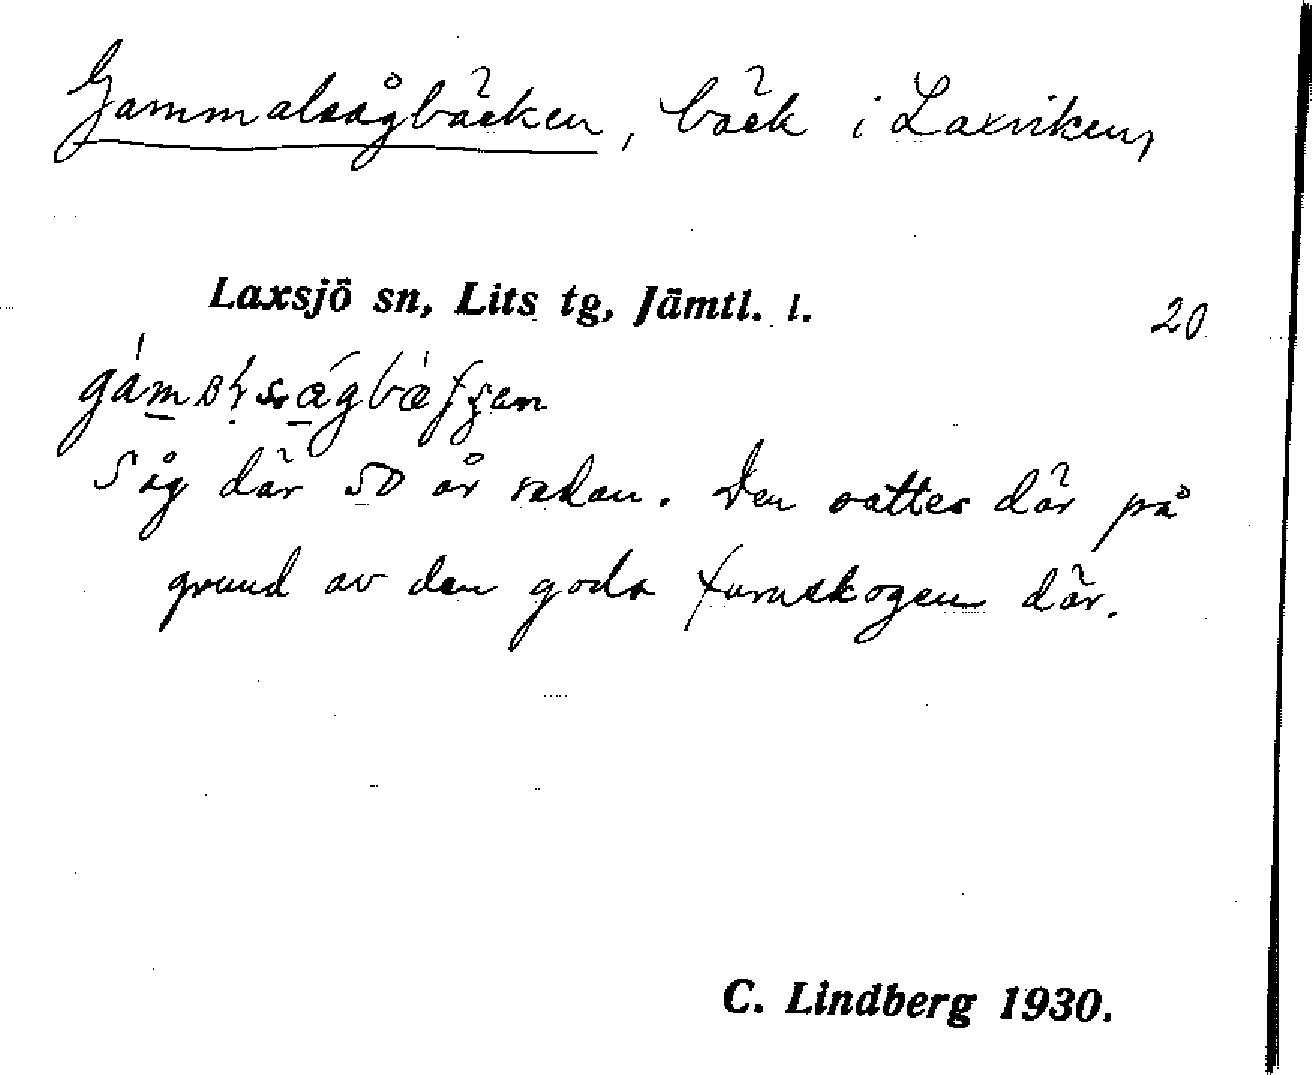 Gammalsågbäcken, bäck i Laxviken,
Laxsjö sn, Lits tg, Jämtl. l.
20
Såg där 50 år sedan. Den sattes där på
grund av den goda furuskogen där.
C. Lindberg 1930.